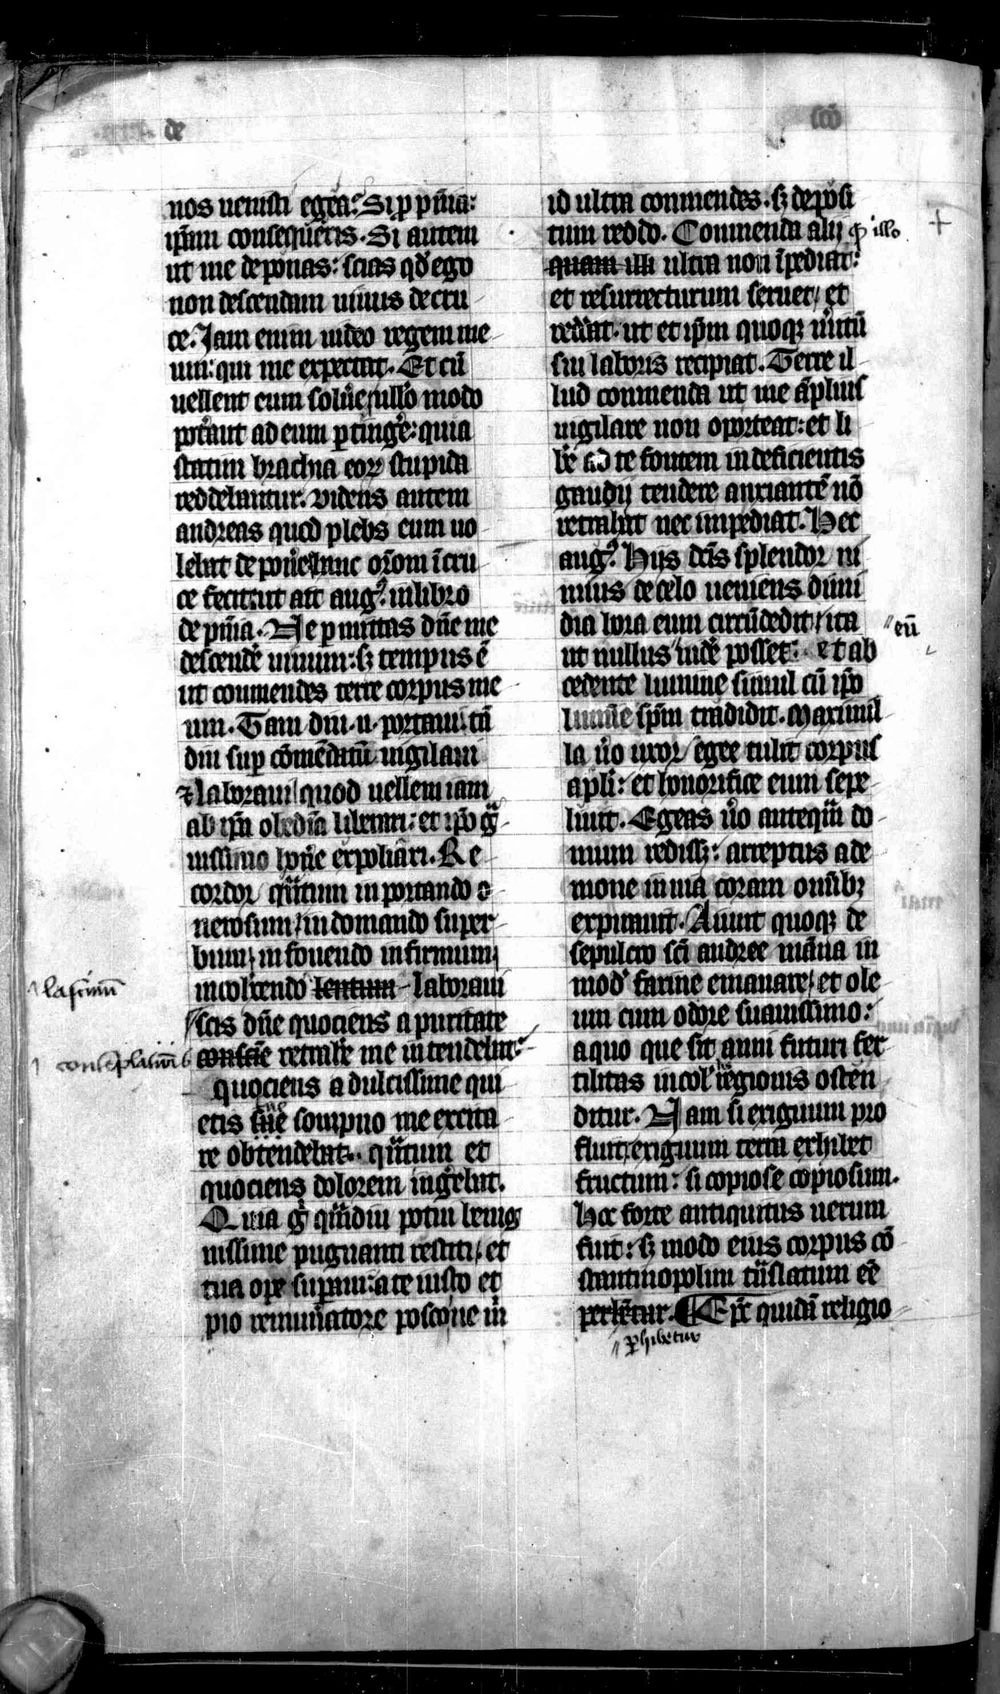 de
nos uenisti egea? Si ꝓ pñia:
ip̃am consequeris. Si autem
ut me deponas: scias qđ ego
non descendam uiuus de cru
ce. Jam enim uideo regem me
um: qui me expectat. Et cũ
uellent eum soluẽ nullo modo
poterant ad eum ꝑtingẽ: quia
statim brachia eoꝝ stupida
reddebantur. Videns autem
andreas quod plebs eum uo
lebat deponẽ hanc or̃om ĩ cru
ce fecit ut ait aug⁹. in libro
de pñia. Ne ꝑmittas dñe me
descendẽ uiuum: sꝫ tempus ẽ
ut commendes terre corpus me
um. Tam diu .n. portaui: tã
diu suꝑ cõmẽdatũ uigilaui
⁊ laboraui quod uellem iam
ab ip̃a obediẽa liberari: et ip̃o gͣ
uissimo honẽ expoliari. Re
cordor qͣntum in portando o
nerosum/ in domando super
bum/ in fouendo infirmum/
in cohercendo lentum laboraui
lasciuũ
scis dñe quociens a puritate
contẽplationis retrahẽ me intendebat:
quociens a dulcissime qui
etis sue sompno me excita
re obtendebat. qͣntum et
quociens dolorem ingerebat.
Quia gͦ qͣmdiu potui benig
nissime pugnanti restiti/ et
tua ope suꝑaui: a te iusto et
pio remunatore posco ne m̃
sco
id ultra commendes. sꝫ deposi
tum reddo. Commenda alij ꝙ illo
quam illi ultra non ĩpediat:
et resurrecturum seruet/ et
reddat. ut et ip̃m quoqꝫ m̃itũ
sui laboris recipiat. Terre il
lud commenda ut me ãplius
uigilare non oporteat: et li
bẽ ad te fontem indeficientis
gaudij tendere anxiantẽ nõ
retrahat nec impediat. Hec
aug⁹. Hijs dc̃is splendor ni
mius de celo ueniens dimi
dia hora eum circũdedit/ ita
eũ
ut nullus uidẽ posset: et ab
cedente lumine simul cũ ip̃o
lumĩe sp̃m tradidit. Maximil
la u̾o uxor egee tulit corpus
apl̃i: et honorifice eum sepe
liuit. Egeas u̾o anteqͣm do
mum redissꝫ: arreptus a de
mone in uia coram omĩbꝫ
expirauit. Aiunt quoqꝫ de
sepulcro sc̃i andree mãna in
mod̾ farine emanare/ et ole
um cum odore suauissimo:
a quo que sit anni futuri fer
tilitas incol̾ regionis osten
ditur. Nam si exiguum pro
fluit/ exiguum terra exhibet
fructum: si copiose copiosum.
Hoc forte antiquitus uerum
fuit: sꝫ modo eius corpus cõ
stantinopolim tͣnslatum eẽ
perhibetur. ¶ Ep̃c quidã religio
ꝑhibetur